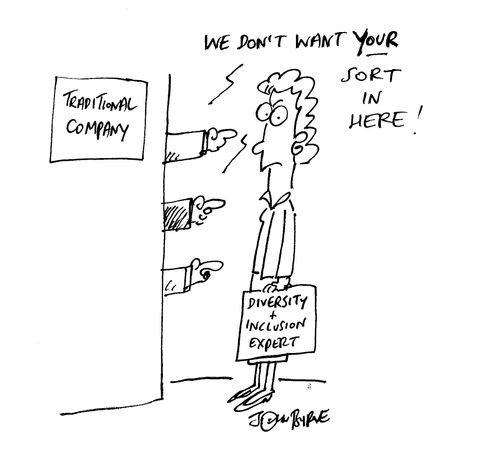 WE DON'T WANT YOUR
SORT
IN
HERE!
TRADITIONAL
COMPANY
DIVERSITY
+
INCLUSION
EXPERT
JOHN BYRNE